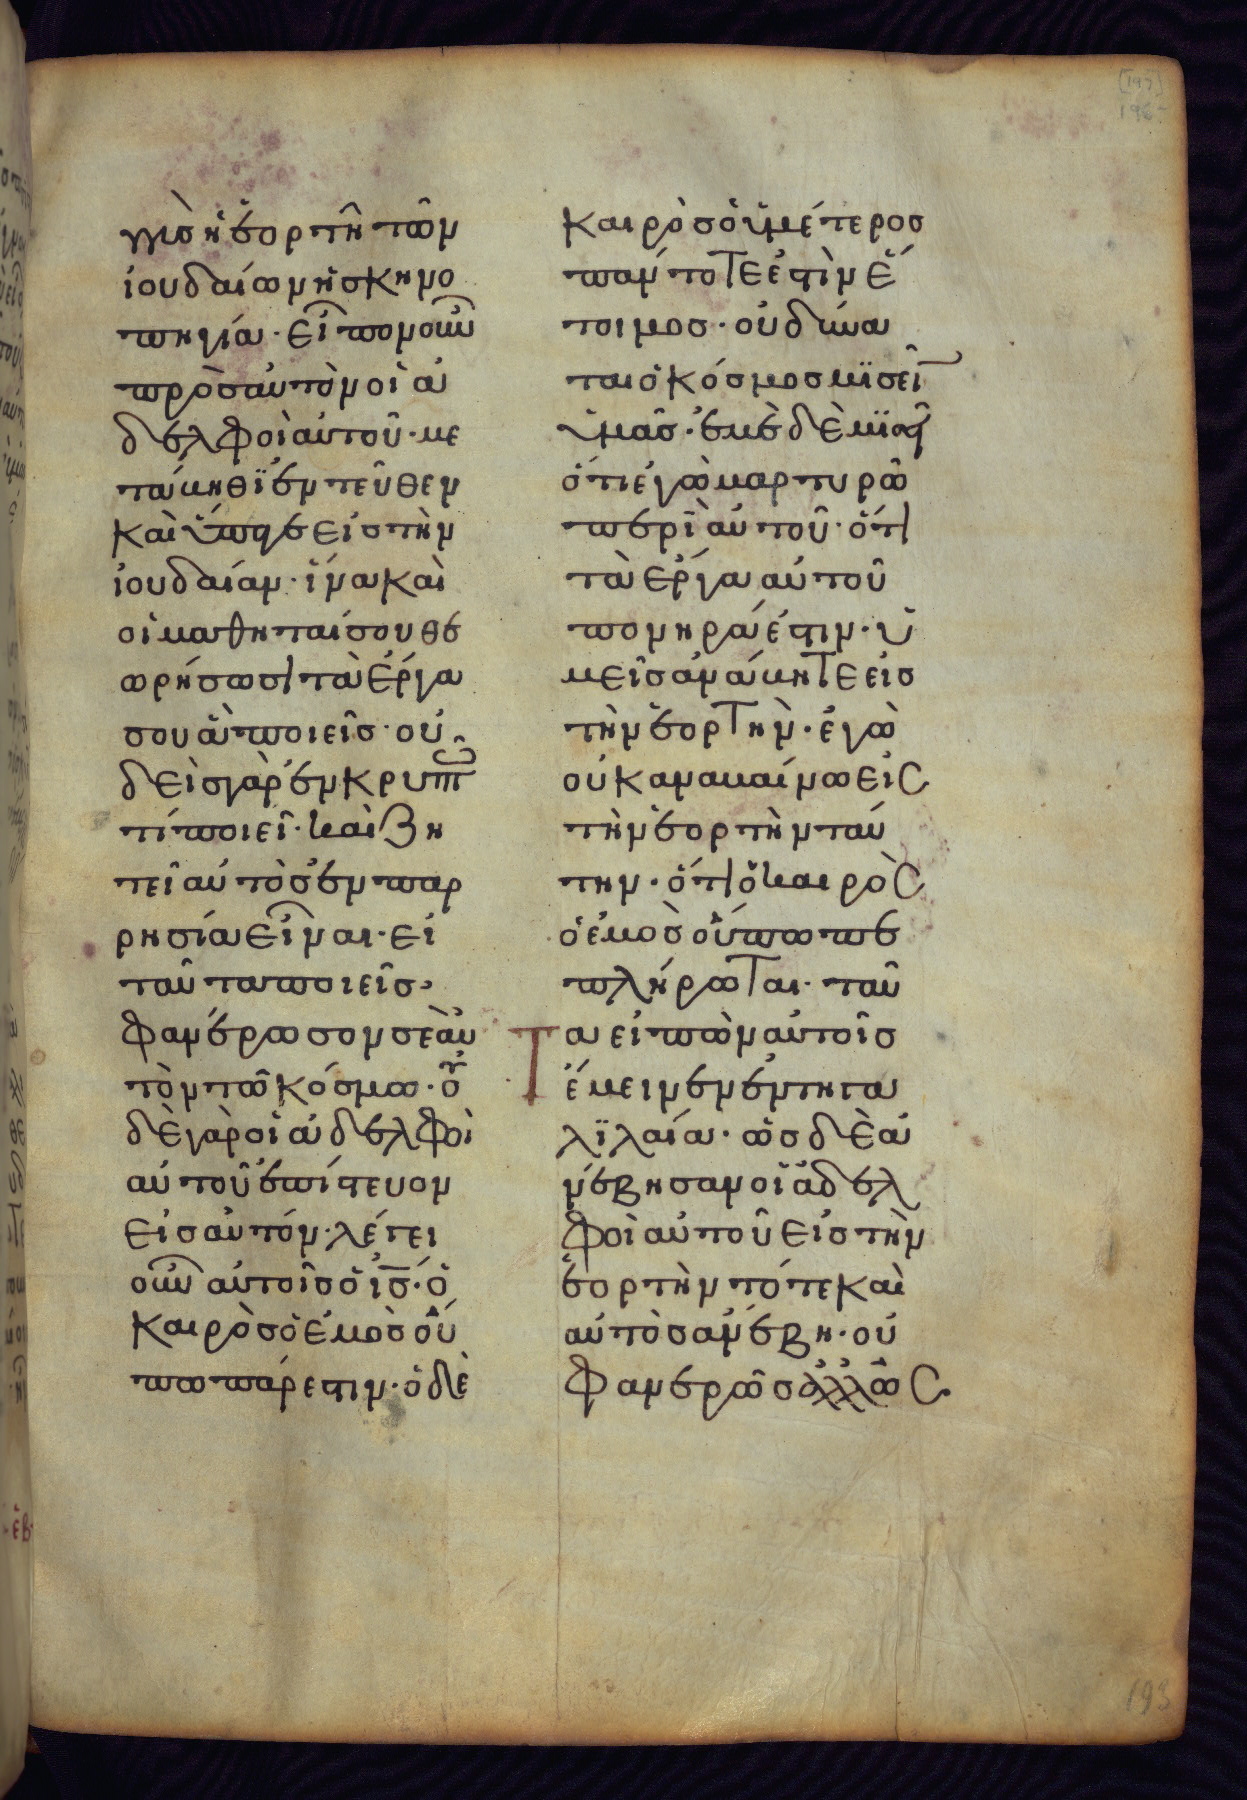 γγὺς ἡ ἑορτὴ τῶν
ἰουδαίων ἡ σκηνο
πηγία· εἶπον οὖν
πρὸς αὐτὸν οἱ ἀ
δελφοὶ αὐτοῦ· με
τάβηθϊ ἐντεῦθεν
καὶ ὕπαγε εἰς τὴν
ἰουδαίαν· ἵνα καὶ
οἱ μαθηταί σου θε
ωρήσωσι τὰ ἔργα
σου ἃ ποιεῖς· οὐ
δεὶς γὰρ ἐν κρυπτῶ
τί ποιεῖ· καὶ ζη
τεῖ αὐτὸς ἐν παρ
ρησία εἶναι· εἰ
ταῦτα ποιεῖς·
φανέρωσον σεαυ
τὸν τῶ κόσμω· οὐ
δὲ γὰρ οἱ ἀδελφοὶ
αὐτοῦ ἐπίστευον
εἰς αὐτόν· λέγει
οὖν αὐτοῖς ὁ ις· ὁ
καιρὸς ὁ ἐμὸς οὔ
πω πάρεστιν· ὁ δὲ
καιρὸς ὁ ὑμέτερος
πάντοτε ἐστὶν ἕ
τοιμος· οὐ δύνα
ται ὁ κόσμος μϊσεῖν
ὑμᾶς· ἐμὲ δὲ μϊσεῖ
ὅτι ἐγὼ μαρτυρῶ
περὶ αὐτοῦ· ὅτι
τὰ ἔργα αὐτοῦ
πονηρά ἐστιν· ὑ
μεῖς ἀνάβητε εἰς
τὴν ἑορτὴν· ἐγὼ
οὐκ ἀναβαίνω εἰς
τὴν ἑορτὴν ταύ
την· ὅτι ὁ καιρὸς
ὁ ἐμὸς οὔπω πε
πλήρωται· ταῦ
Τα εἰπὼν αὐτοῖς
ἔμεινεν ἐν τῆ γα
λϊλαία· ὡς δὲ ἀ
νέβησαν οἱ ἀδελ
φοὶ αὐτοῦ εἰς τὴν
ἑορτὴν τότε καὶ
αὐτὸς ἀνέβη· οὐ
φανερῶς ἀλλ ὡς
193